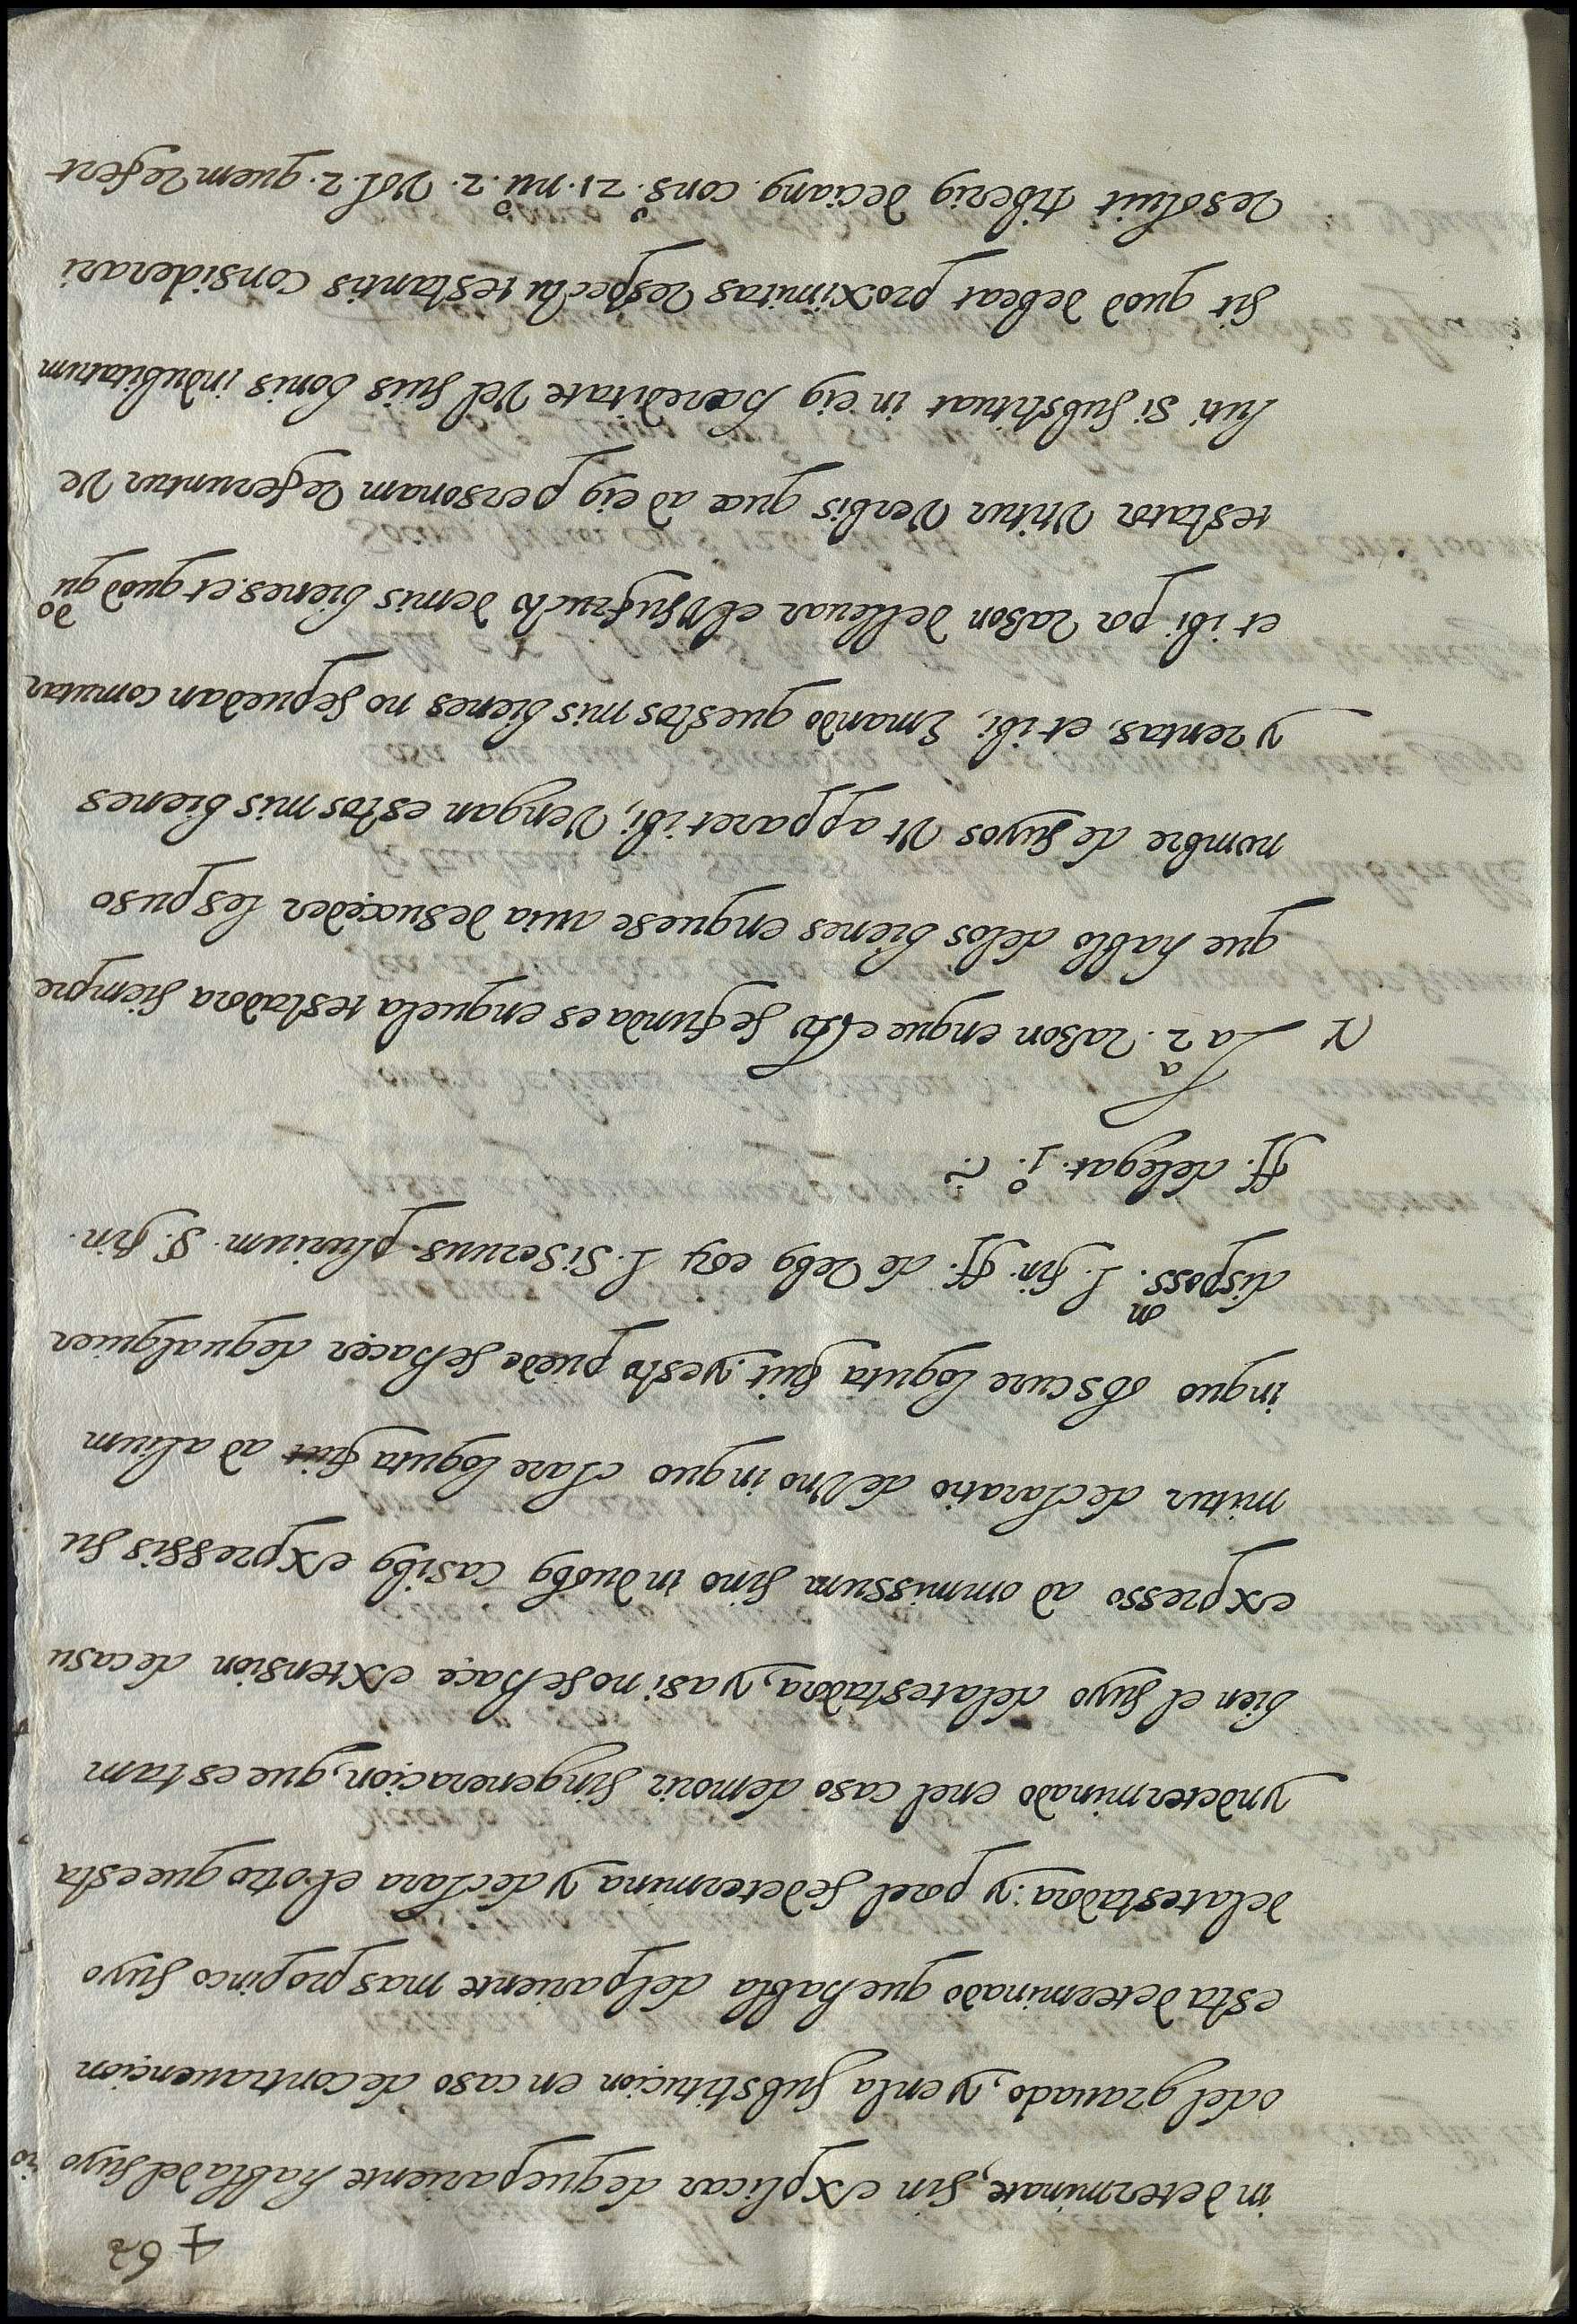 + 62
indeterminate, sin explicar dequepariente habla del suyo
odel grauado, y enla substituçion en caso decontrauençion
esta determinado que habla del pariente mas propinco suyo
dela testadora: y porel sedetermina y declara el otro que esta
yndeterminado enel caso demorir singeneraçion, que es tam
bien el suyo dela testadora, y asi no se haçe extension de casu
expresso ad ommissum sino in duobꝫ casibꝫ expressis su
mitur declaratio de Vno in quo clare loquuta fuit ad alium
inquo obscure loquuta fuit. yesto puede se haçer dequalquier
disposson. l. fin. ff. de rebꝫ eoꝝ l. si seruus plurium. §. fin.
ff. de legat. jº. ĩ.
La 2a. rason en que esto se funda es enque la testadora siempre
que hablo delos bienes enquese auia desuçeder les puso
nombre de suyos Vt apparet ibi, Vengan estos mis bienes
y rentas, et ibi, E mando questos mis bienes no sepuedan comutar
et ibi por rason dellevar el Vsufructo demis bienes. et quod qudo
testator Vtitur Verbis quæ ad eiꝰ personam referuntur Ve
luti si substituat in eiꝰ hæreditate Vel suis bonis indubitatum
sit quod debeat proximitas respectu testantis considerari
resoluit tiberiꝰ deçianꝰ. consº. 21. nuº. 2. Vol. 2. quem refert